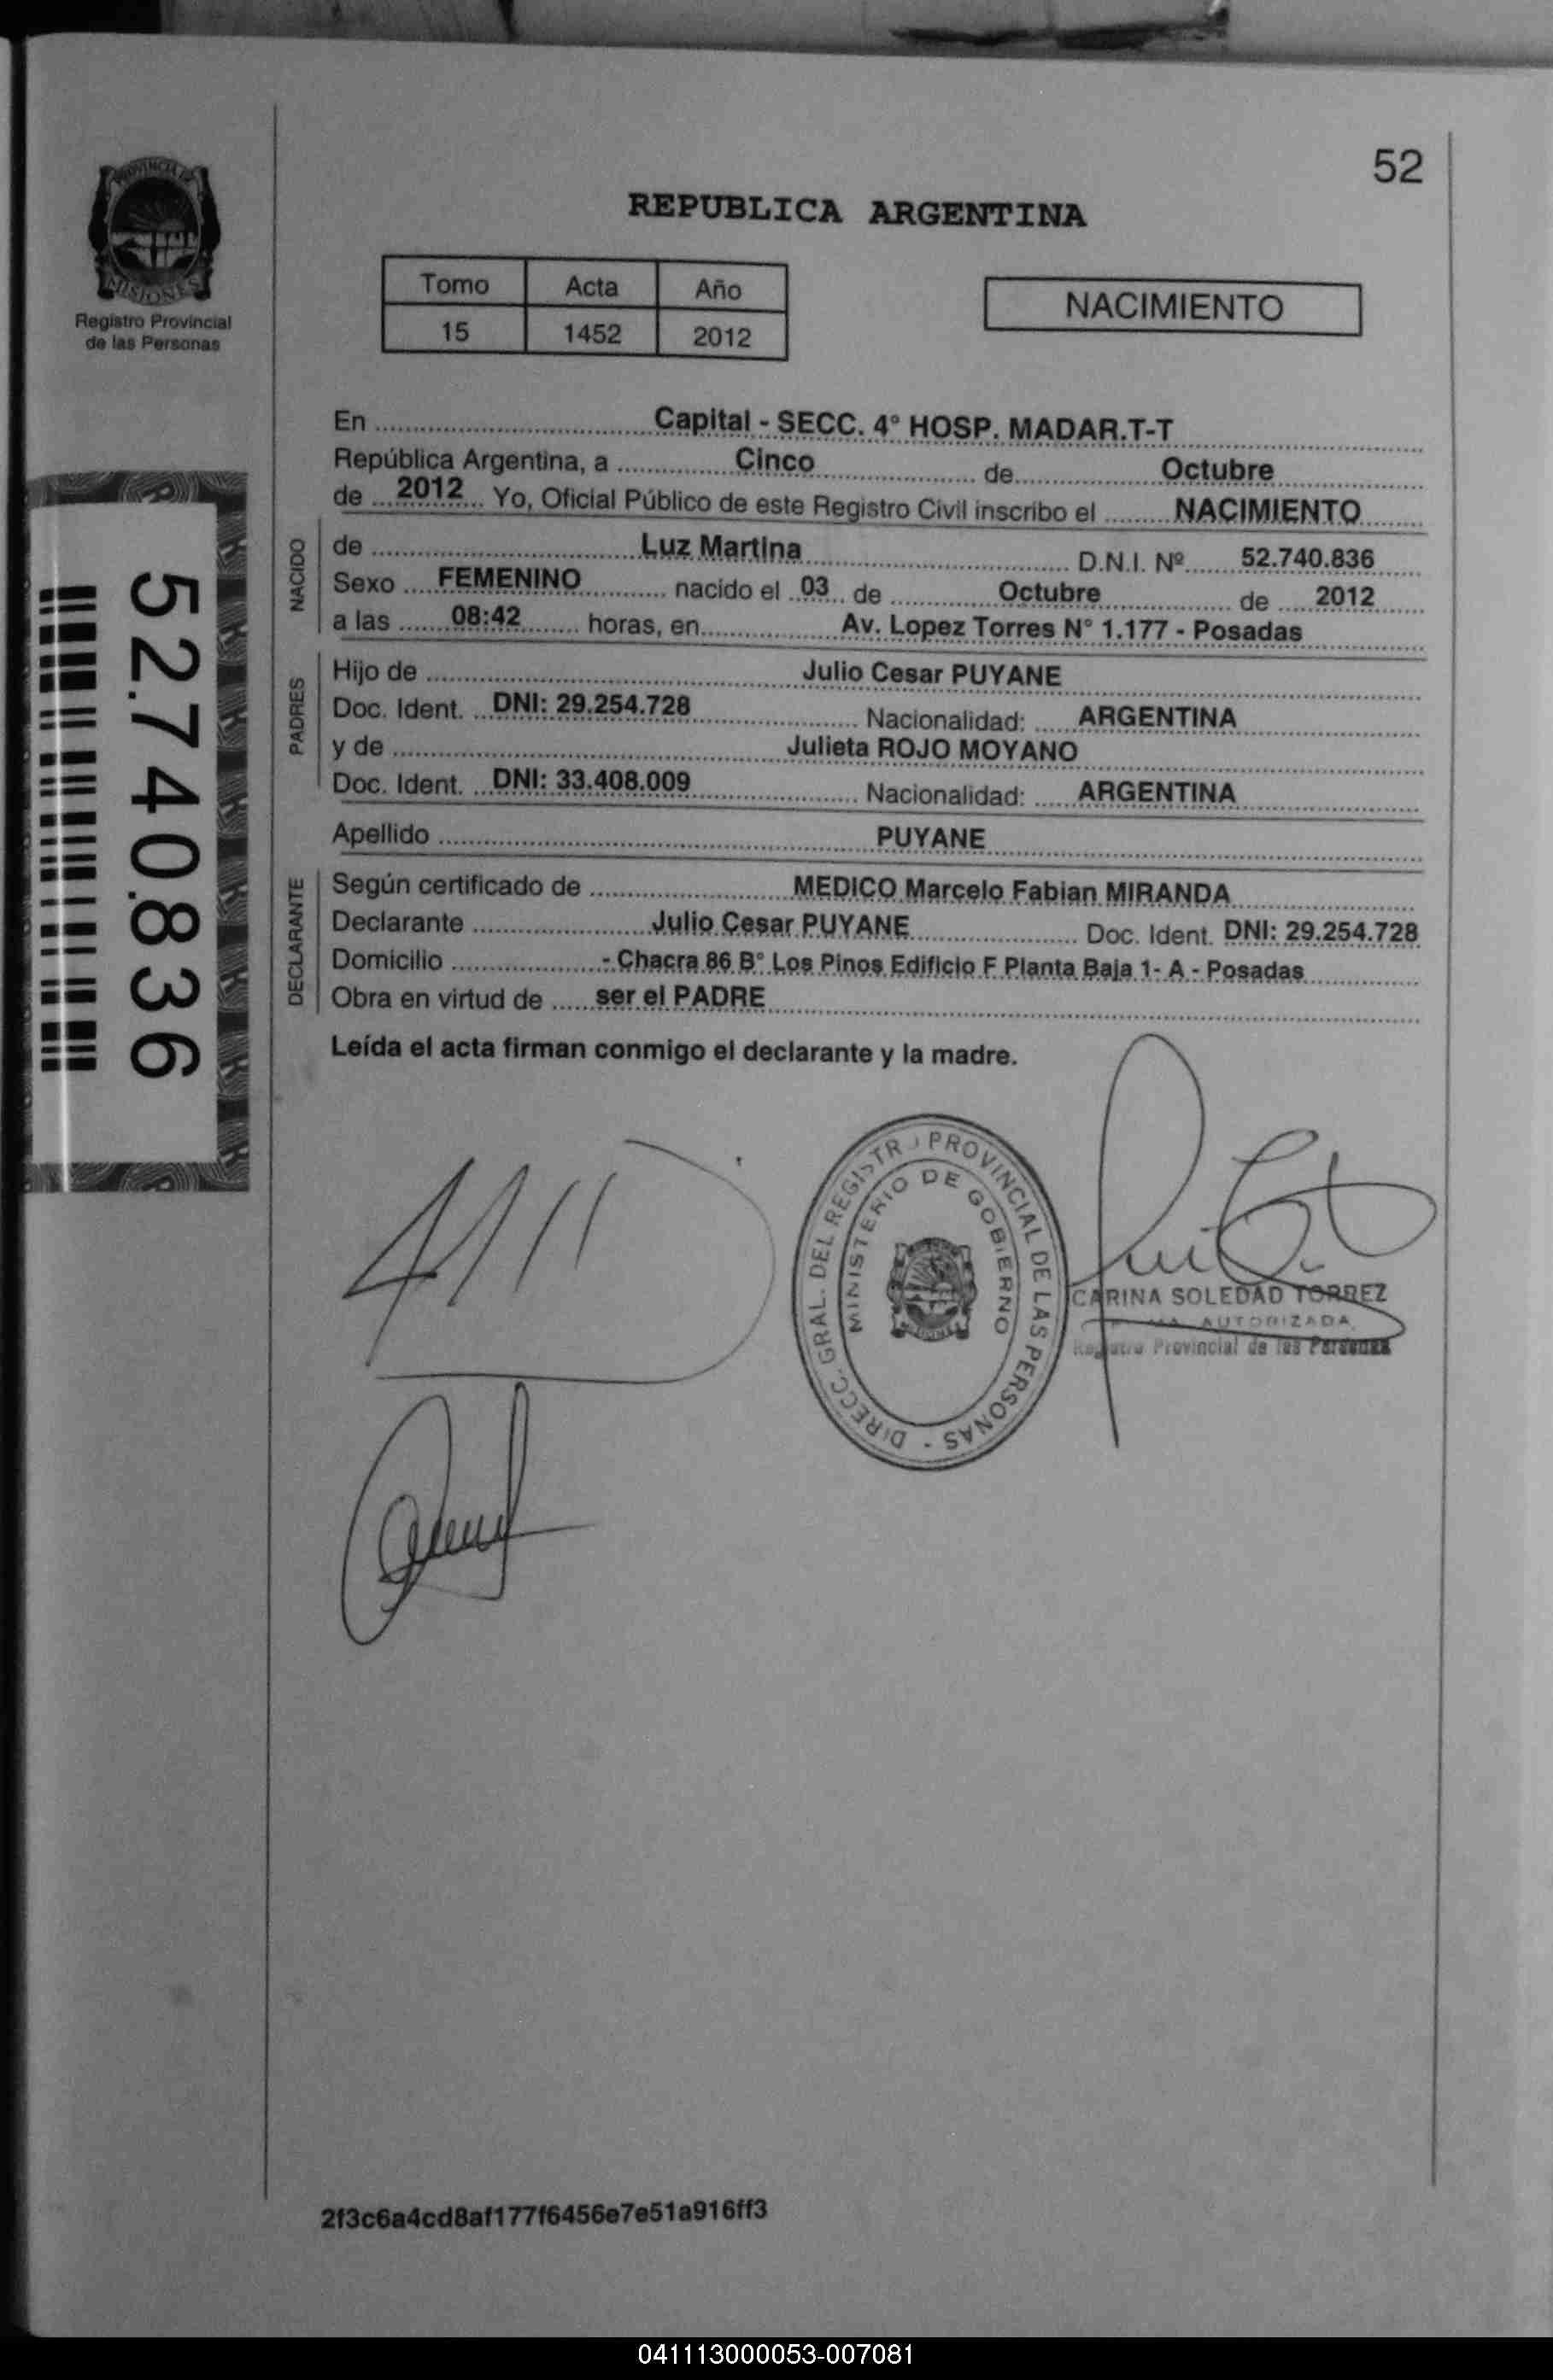 52
PROVINCIA DE
MISIONES
Registro Provincial
de las Personas
REPUBLICA ARGENTINA
Tomo Acta Año
15 1452 2012
NACIMIENTO
En Capital - SECC. 4° HOSP. MADAR.T-T
República Argentina, a Cinco de Octubre
de 2012 Yo, Oficial Público de este Registro Civil inscribo el NACIMIENTO
NACIDO
de Luz Martina D.N.I. Nº 52.740.836
Sexo FEMENINO nacido el 03 de Octubre de 2012
a las 08:42 horas, en Av. Lopez Torres N° 1.177 - Posadas
PADRES
Hijo de Julio Cesar PUYANE
Doc. Ident. DNI: 29.254.728 Nacionalidad: ARGENTINA
y de Julieta ROJO MOYANO
Doc. Ident. DNI: 33.408.009 Nacionalidad: ARGENTINA
Apellido PUYANE
DECLARANTE
Según certificado de MEDICO Marcelo Fabian MIRANDA
Declarante Julio Cesar PUYANE Doc. Ident. DNI: 29.254.728
Domicilio - Chacra 86 B° Los Pinos Edificio F Planta Baja 1- A - Posadas
Obra en virtud de ser el PADRE
Leída el acta firman conmigo el declarante y la madre.
52.740.836
DIRECC. GRAL. DEL REGISTRO PROVINCIAL DE LAS PERSONAS -
MINISTERIO DE GOBIERNO
CARINA SOLEDAD TORREZ
AUTORIZADA
Registro Provincial de las Personas
2f3c6a4cd8af177f6456e7e51a916ff3
041113000053-007081